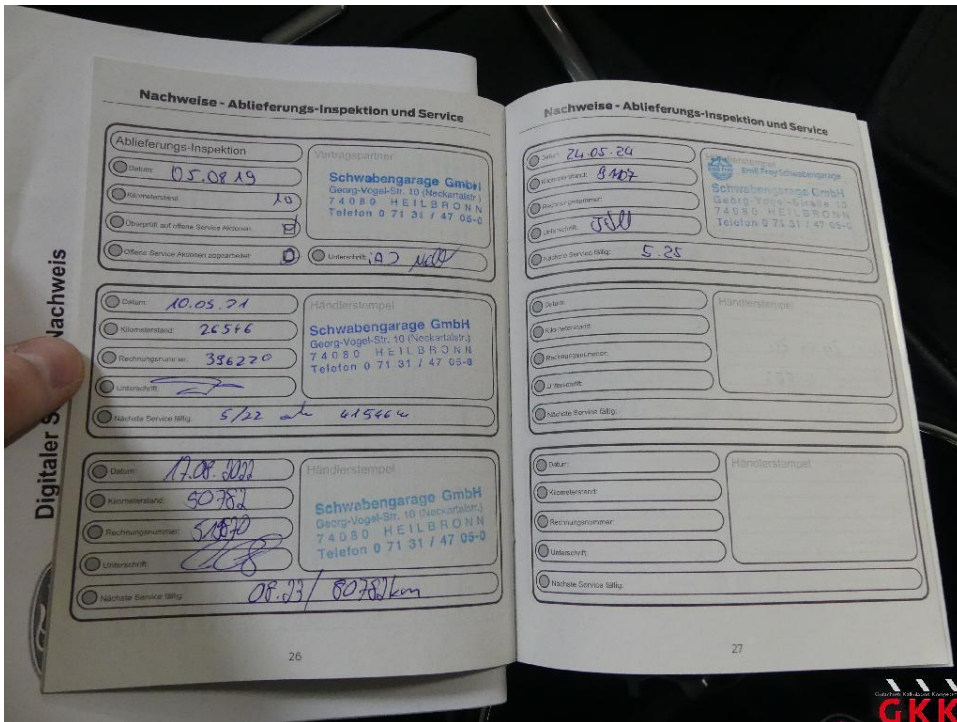 Digitaler S
Nachweis
Nachweise - Ablieferungs-Inspektion und Service
Ablieferungs-Inspektion
Datum: 05.08 19
Kilometerstand: 10
Überprüft auf offene Service Aktionen:
Offene Service Aktionen abgearbeitet:
Vertragspartner
Schwabengarage GmbH
Georg-Vogel-Str. 10 (Neckartalstr.)
74080 HEILBRONN
Telefon 0 71 31 / 47 05-0
Unterschrift:
Datum: 10.05.21
Kilometerstand: 26546
Rechnungsnummer: 396220
Unterschrift:
Nächste Service fällig: 5/22
Händlerstempel
Schwabengarage GmbH
Georg-Vogel-Str. 10 (Neckartalstr.)
74080 HEILBRONN
Telefon 0 71 31 / 47 05-0
Datum: 17.08.2022
Kilometerstand: 50782
Rechnungsnummer:
Unterschrift:
Nächste Service fällig: 08.23/ 80782km
Händlerstempel
Schwabengarage GmbH
Georg-Vogel-Str. 10 (Neckartalstr.)
74080 HEILBRONN
Telefon 0 71 31 / 47 05-0
26
Nachweise - Ablieferungs-Inspektion und Service
Datum: 24.05.24
Kilometerstand:
Rechnungsnummer:
Unterschrift:
Nächste Service fällig: 5.25
Händlerstempel
Emil Frey Schwabengarage
Schwabengarage GmbH
Georg-Vogel-Straße 10
74080 HEILBRONN
Telefon 0 71 31 / 47 05-0
Datum:
Kilometerstand:
Rechnungsnummer:
Unterschrift:
Nächste Service fällig:
Händlerstempel
Datum:
Kilometerstand:
Rechnungsnummer:
Unterschrift:
Nächste Service fällig:
Händlerstempel
27
GKK